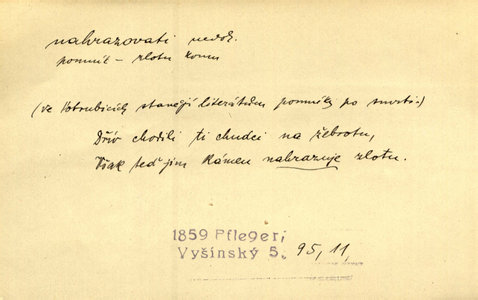 nahrazovati nedok.
pomník – zlotu komu
(ve Votrubicích stavějí literátům pomníky po smrti.)
Dřív chodili ti chudci na žebrotu,
Však teď jim kámen nahrazuje zlotu.
1859 Pfleger,
Vyšínský 5. 95, 11,